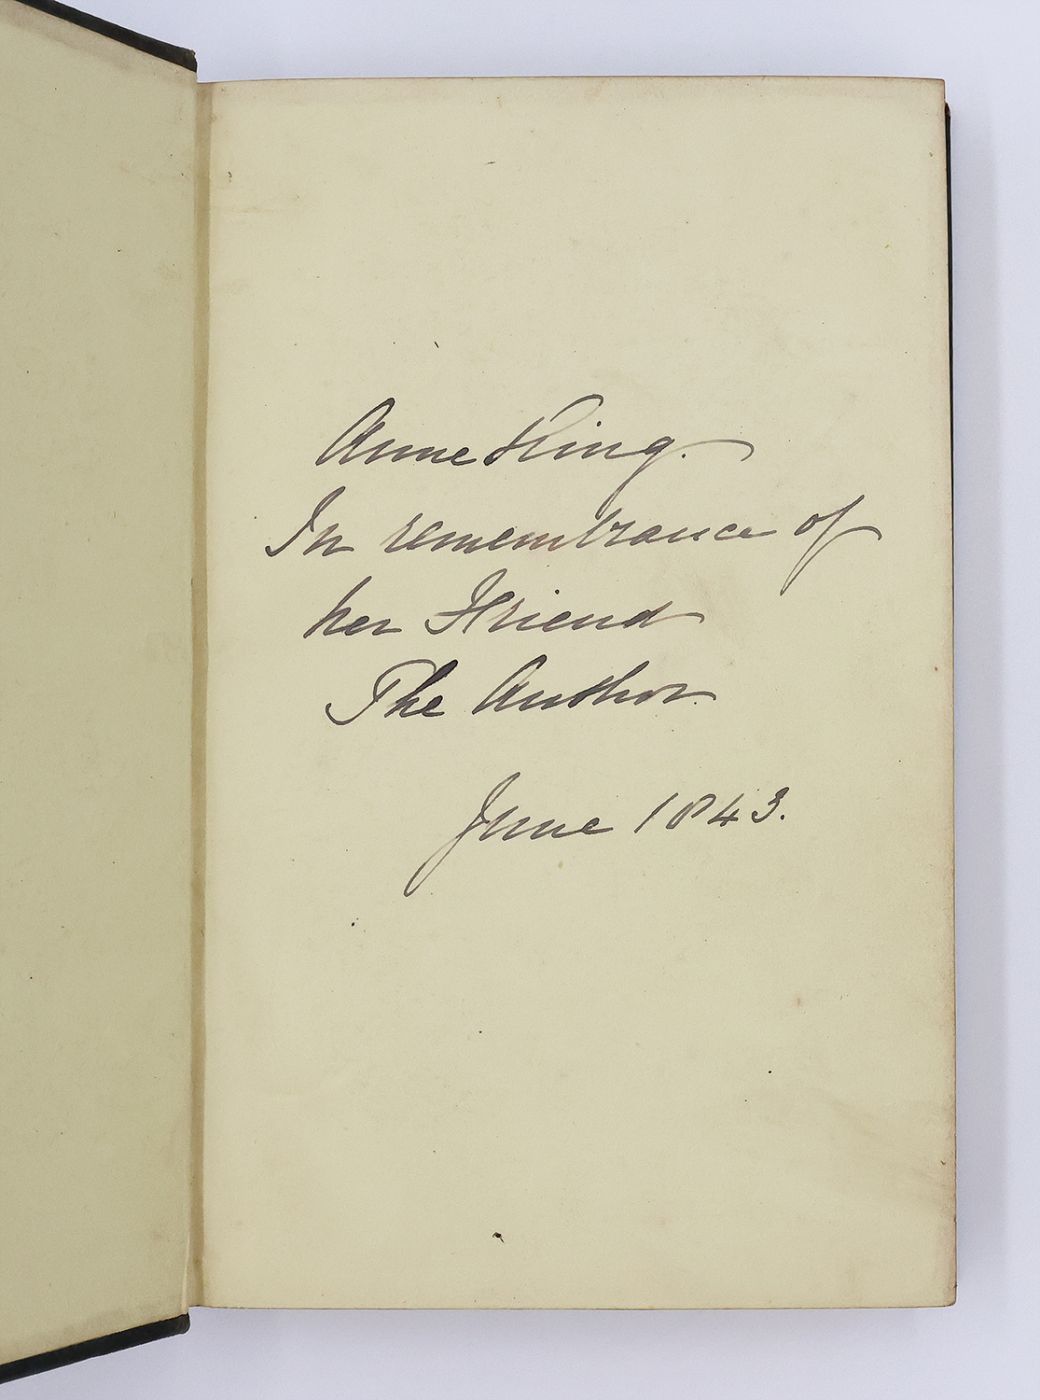 Anne King.
In remembrance of
her Friend
The Author.
June 1843.